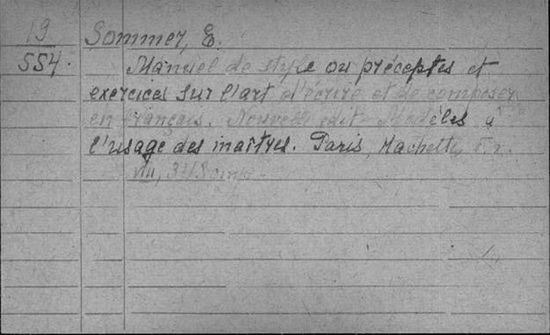 19 Sommer, E.
554. Manuel de style ou préceptes et
exercices sur l'art d'écrire et de composer
en français. Nouvelle édit. Modèles à
l'usage des maîtres. Paris, Hachette,
VIII, 348